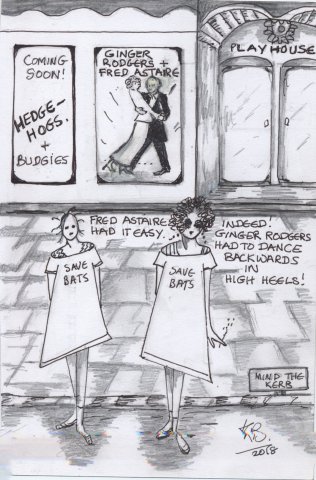 COMING
SOON!
HEDGE-
HOGS.
+
BUDGIES
GINGER
RODGERS +
FRED ASTAIRE
PLAYHOUSE
FRED ASTAIRE
HAD IT EASY.
INDEED!
GINGER RODGERS
HAD TO DANCE
BACKWARDS
IN
HIGH HEELS!
SAVE
BATS
SAVE
BATS
MIND THE
KERB
KB.
2018